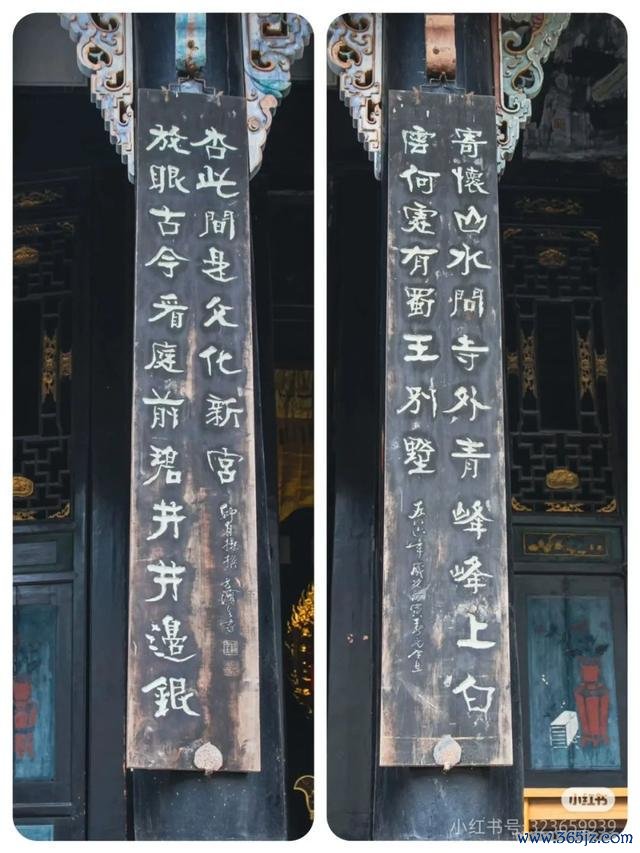 寄懷山水問寺外青峰峰上白
雲何處有蜀王別墅
放眼古今看庭前碧井井邊銀
杏此間是文化新宮
小红书
小红书号:323659939
www.365jz.com